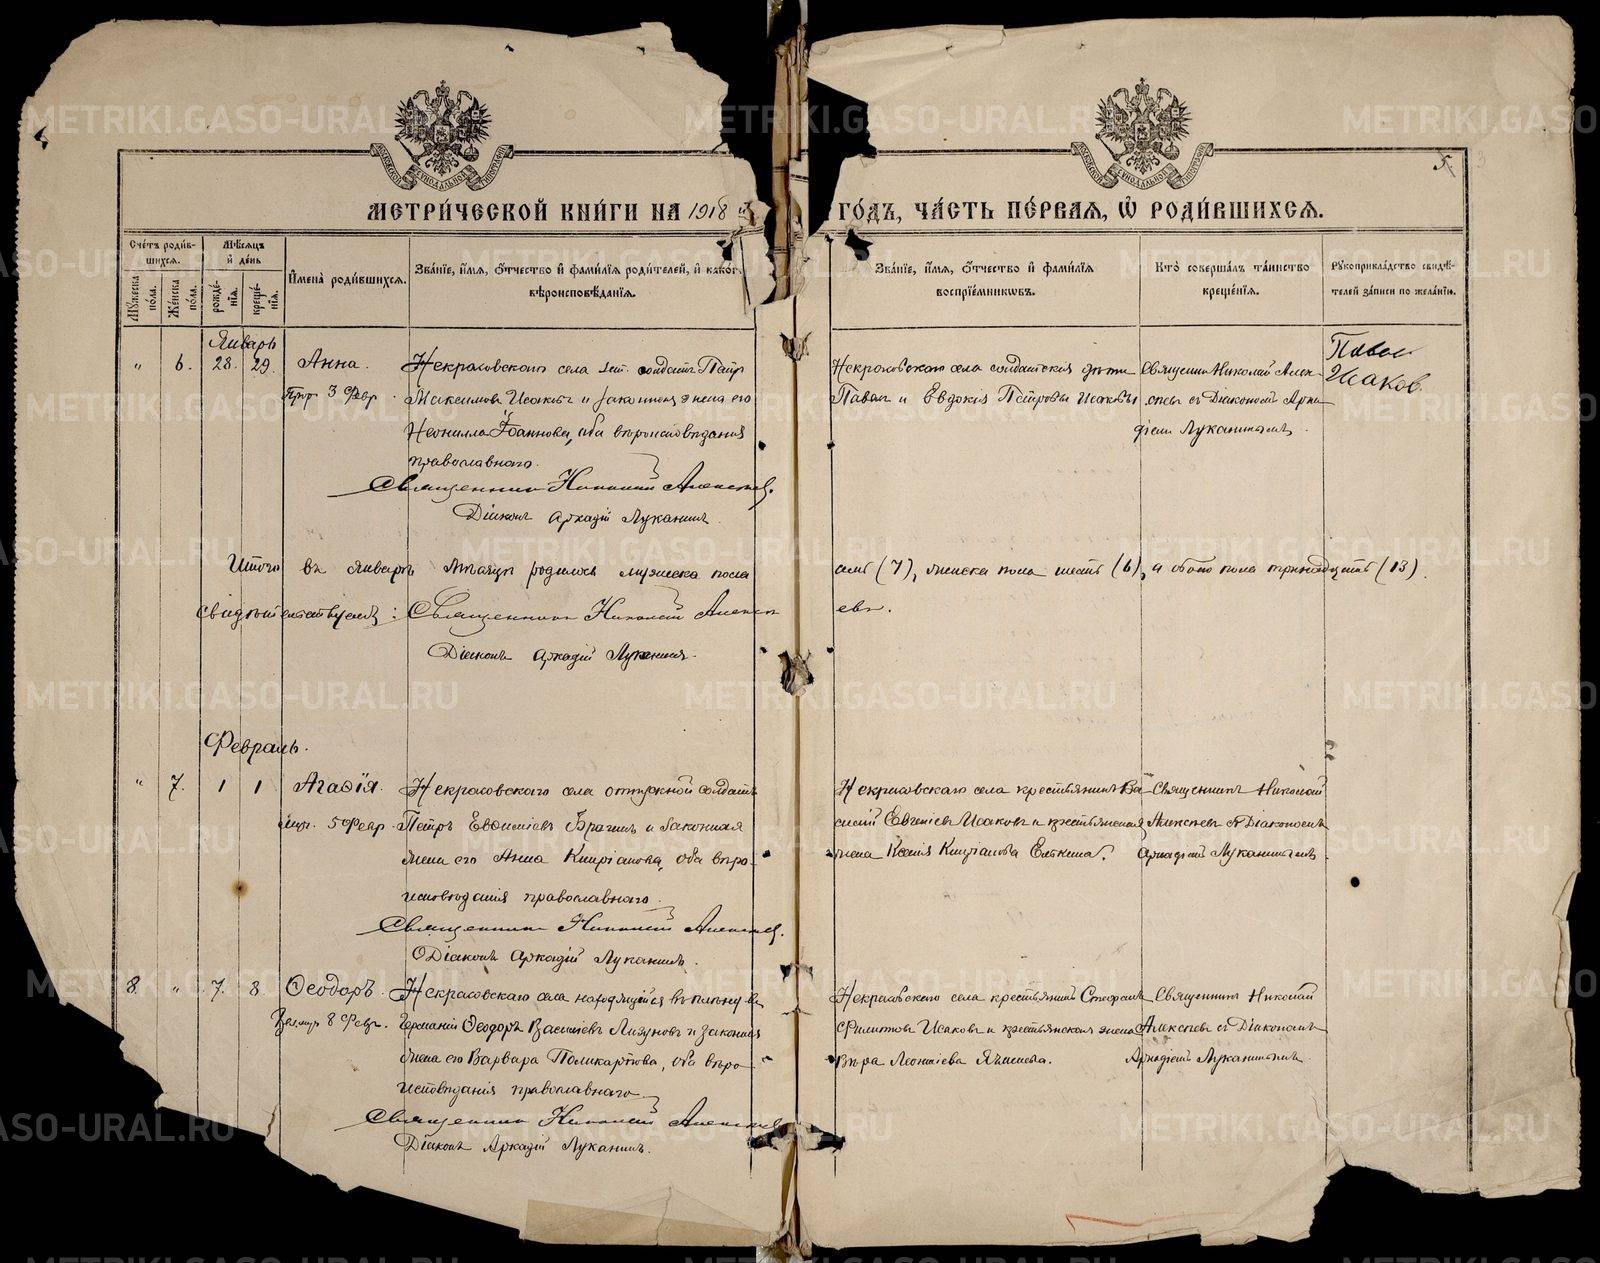 МЕТРИ́ЧЕСКОЙ КНИ́ГИ НА 1918 й
ГО́ДЪ, ЧА́СТЬ ПЕ́РВАЯ, Ѿ РОДИ́ВШИХСЯ.
5
МОСКОВСКОЙ СѴНОДАЛЬНОЙ ТИПОГРАФІИ
МОСКОВСКОЙ СѴНОДАЛЬНОЙ ТИПОГРАФІИ
Сче́тъ роди́в-
шихся.
Му́жеска по́ла.
Же́нска по́ла.
Мѣ́сяцъ
и҆ де́нь
рожде́-
нїя.
креще́-
нїя.
И҆мена̀ роди́вшихся.
Зва́нїе, и҆́мя, ѻ҆́тчество и҆ фами́лїя роди́телей, и҆ како́гѡ
вѣроисповѣ́данїя.
Зва́нїе, и҆́мя, ѻ҆́тчество и҆ фами́лїя
воспрїе́мникѡвъ.
Кто̀ соверша́лъ та́инство
креще́нїя.
Рукоприкла́дство свидѣ́-
телей за́писи по жела́нїю.
Январь
„ 6. 28. 29. Анна.
3 Февр.
Некрасовскаго села солдатъ Петръ
Максимовъ Исаковъ и законная жена его
Неонилла Іоаннова, оба вѣроисповѣданія
православнаго.
Священникъ Николай Алексѣевъ.
Діаконъ Аркадій Луканинъ.
Некрасовскаго села солдатскія дѣти
Павелъ и Евдокія Петровы Исаковы.
Священникъ Николай Алек-
сѣевъ съ Діакономъ Арка-
діемъ Луканинымъ.
Павел
Исаков.
Итого въ Январѣ мѣсяцѣ родилось мужеска пола
семь (7), женска пола шесть (6), а обоего пола тринадцать (13).
свидѣтельствуемъ: Священникъ Николай Алексѣ
евъ.
Діаконъ Аркадій Луканинъ.
Февраль.
„ 7. 1 1 Агаѳія.
5 Февр.
Некрасовскаго села отпускной солдатъ
Петръ Евѳиміевъ Брагинъ и законная
жена его Анна Кипріанова, оба вѣро-
исповѣданія православнаго.
Священникъ Николай Алексѣевъ.
Діаконъ Аркадій Луканинъ.
Некрасовскаго села крестьянинъ Ва-
силій Евгеніевъ Исаковъ и крестьянская
жена Ксенія Кипріанова Елькина.
Священникъ Николай
Алексѣевъ съ Діакономъ
Аркадіемъ Луканинымъ.
8. „ 7. 8. Ѳеодоръ.
8 Февр.
Некрасовскаго села находящійся въ плѣну въ
Германіи Ѳеодоръ Васильевъ Лизуновъ и законная
жена его Варвара Поликарпова, оба вѣро
исповѣданія православнаго.
Священникъ Николай Алексѣевъ
Діаконъ Аркадій Луканинъ.
Некрасовскаго села крестьянинъ Стефанъ
Филиповъ Исаковъ и крестьянская жена
Вѣра Леонтіева
Священникъ Николай
Алексѣевъ съ Діакономъ
Аркадіемъ Луканинымъ.
METRIKI.GASO-URAL.RU